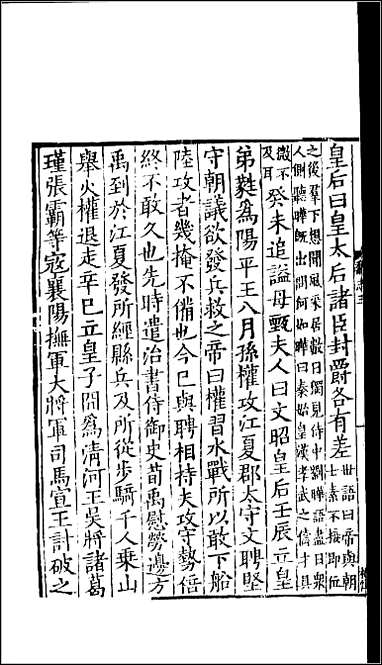 皇后曰皇太后諸臣封爵各有差世語曰帝與朝士素不接即位
之後羣下想聞風采居數日獨見侍中劉曄語盡日衆
人側聽曄旣出問何如曄曰秦始皇漢孝武之儔才具
微不及耳癸未追謚母甄夫人曰文昭皇后壬辰立皇
弟蕤爲陽平王八月孫權攻江夏郡太守文聘堅
守朝議欲發兵救之帝曰權習水戰所以敢下船
陸攻者幾掩不備也今已與聘相持夫攻守勢倍
終不敢久也先時遣治書侍御史荀禹慰勞邊方
禹到於江夏發所經縣兵及所從步騎千人乘山
舉火權退走辛巳立皇子冏爲清河王吳將諸葛
瑾張霸等寇襄陽撫軍大將軍司馬宣王討破之